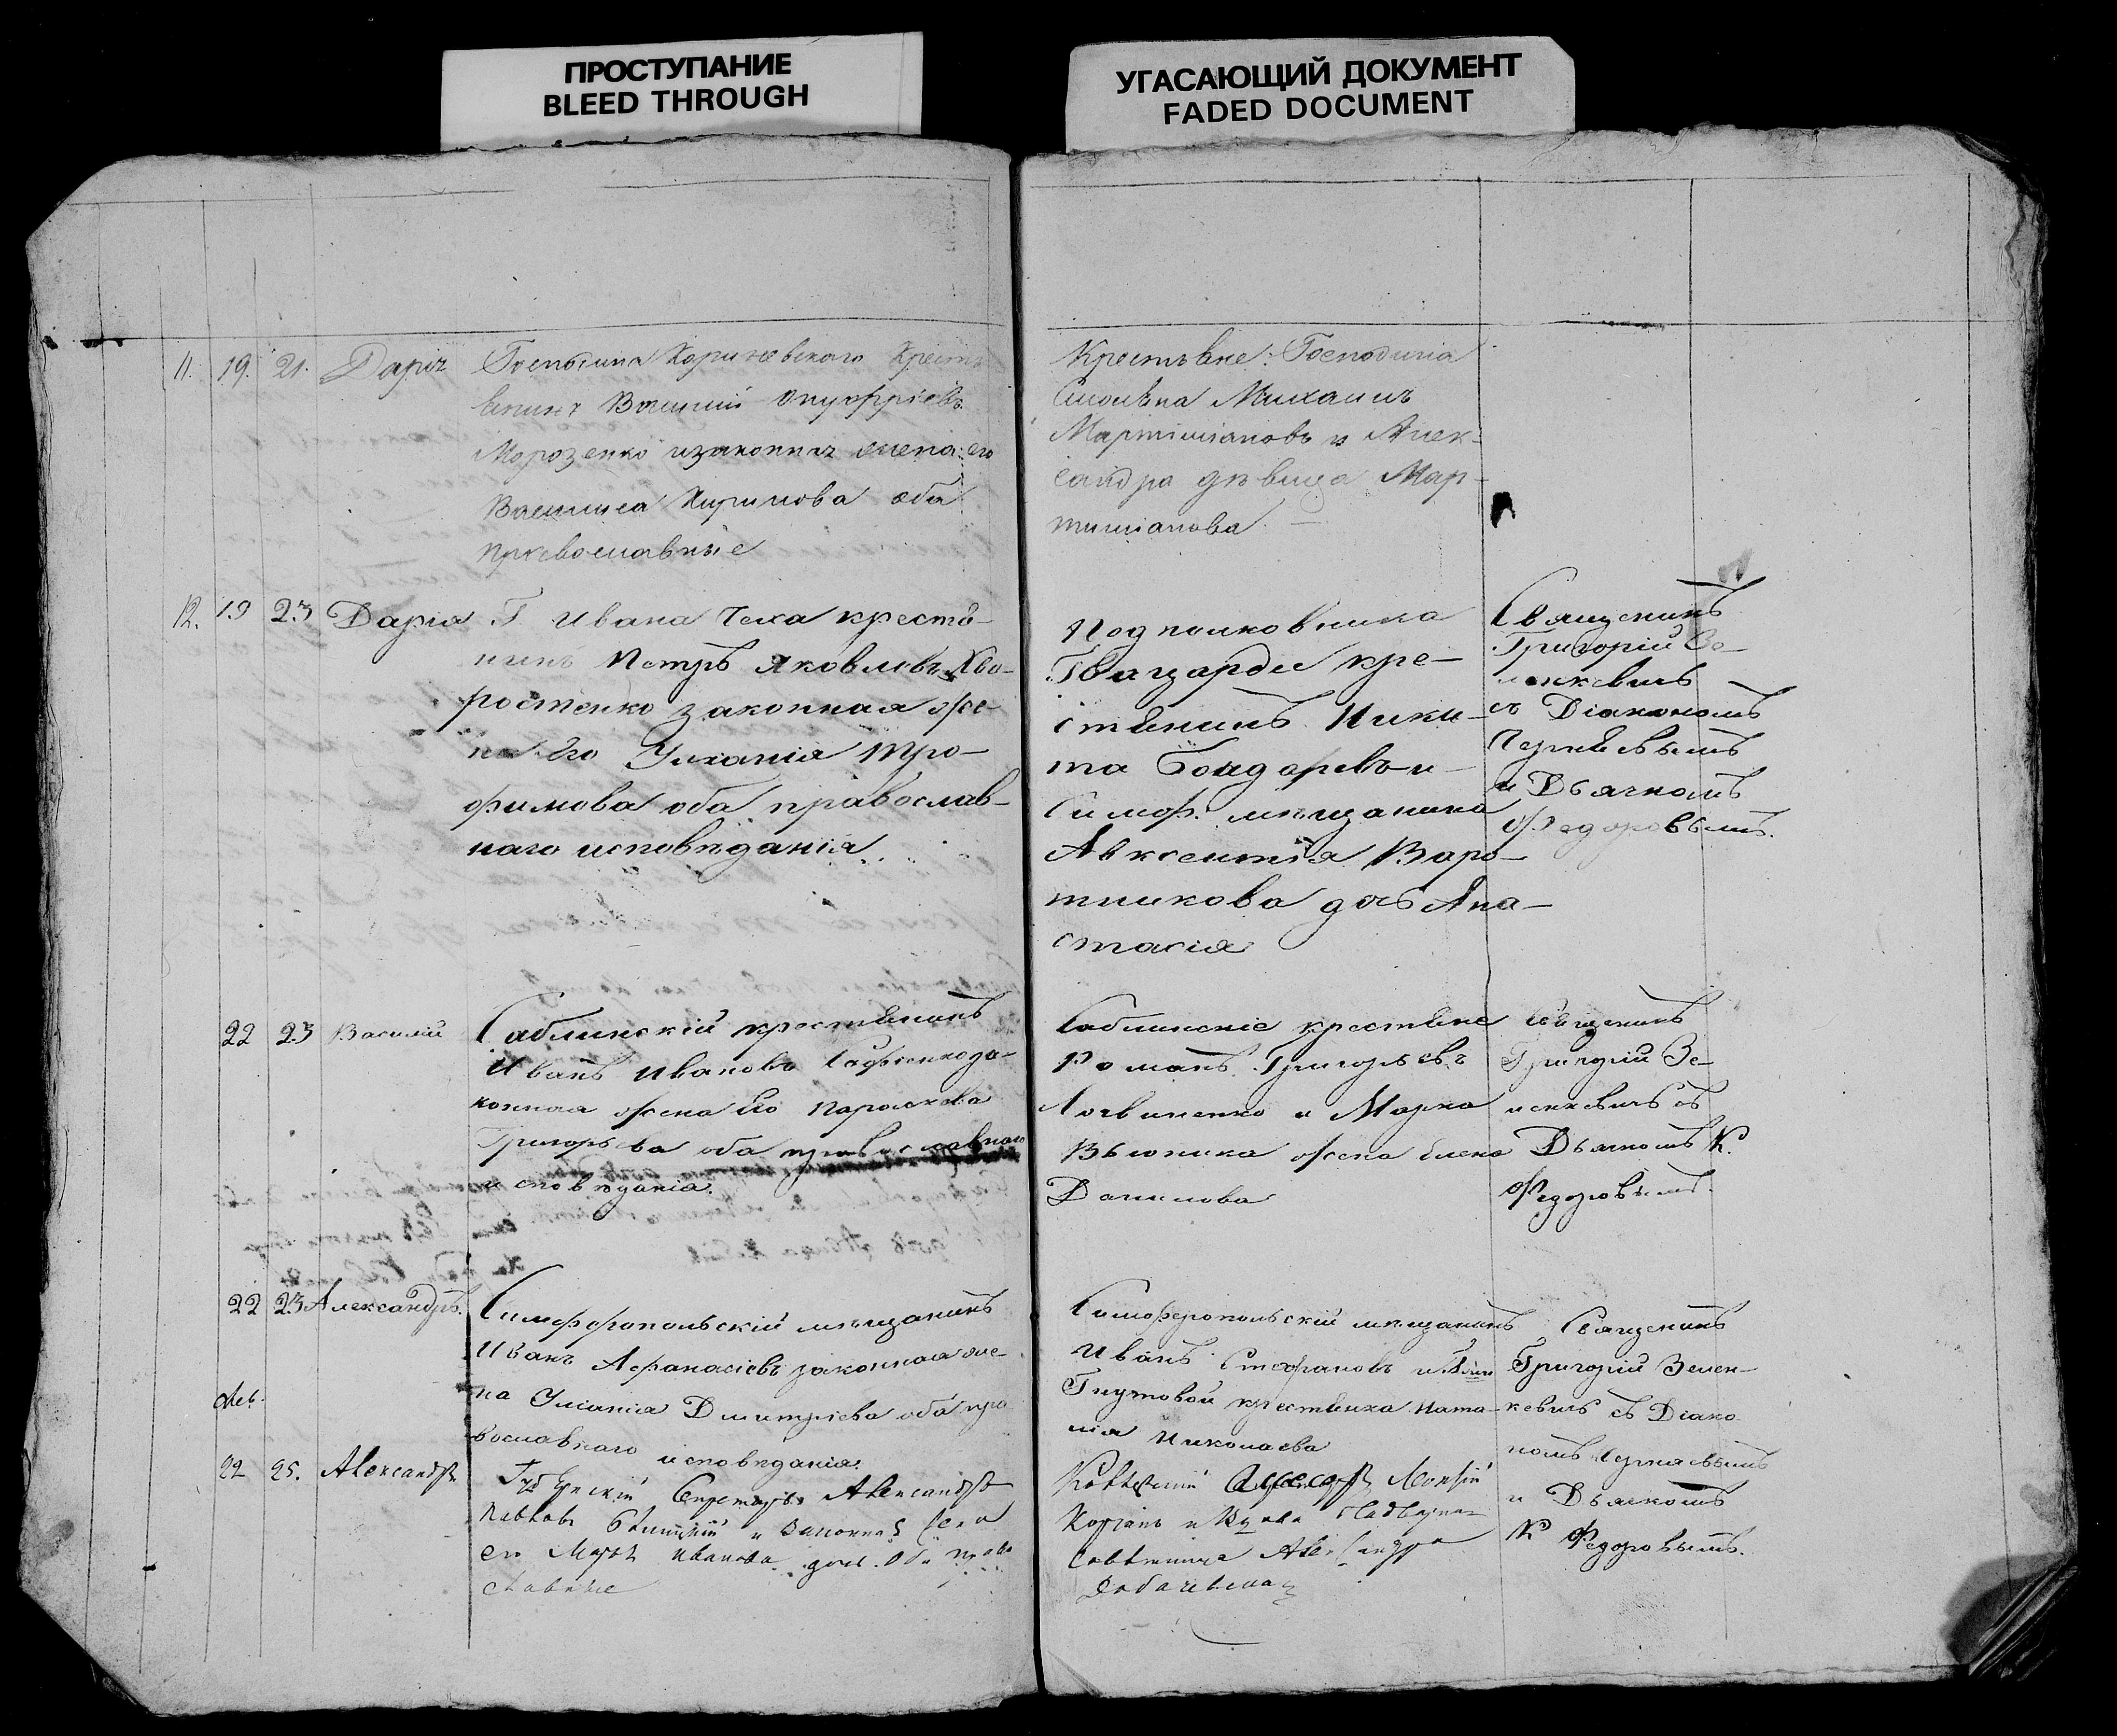 ПРОСТУПАНИЕ
BLEED THROUGH
УГАСАЮЩИЙ ДОКУМЕНТ
FADED DOCUMENT
11. 19. 21. Дарія
Господина Кориневскаго Крестья
Василій Онуфріевъ
Морозенко изаконная жена его
Василиса Кирилова оба
православные
Крестьяне: Господина
Михаилъ
Мартиніановъ и Алек-
сандра дѣвица Мар-
тиніанова
12. 19 23 Дарія
Г. Ивана Чеха крестья-
нинъ Петръ Яковлевъ Хво-
ростенко законная же-
на Его Уліанія Тро-
фимова оба православ-
наго исповѣданія
Подполковника
Гващардe кре-
стьянинъ Ники-
та Бондаревъ и
Симф. мѣщанина
Авксентія Варо-
тникова дочь Ана-
стасія
Священникъ
Григорій Зе-
ленкевичь
съ Діакономъ
Чернявымъ
и Дьячкомъ
Федоровымъ.
22 23 Василій
Саблинскій крестьянинъ
Иванъ Ивановъ за-
конная жена Его Параскева
Григорьева оба православнаго
исповѣданія.
Саблинскіе крестьяне
Романъ Григорьевъ
Логвиненко и Марка
Вьюника жена Елена
Данилова
Священникъ
Григорій Зе-
ленкевичь съ
Дьячкомъ К.
Федоровымъ.
22 23 Александръ.
Симферопольскій мѣщанинъ
Иванъ Афанасіевъ законная же-
на Уліанія Дмитріева оба пра
вославнаго исповѣданія.
Симферопольскій мѣщанинъ
Иванъ Стефановъ и
крестьянка Ната-
лія Николаева
Священникъ
Григорій Зелен-
кевичь съ Діако
номъ Чернявымъ
и Дьячкомъ
К Федоровымъ.
22 25. Александръ
Губернскій Секретарь Александръ
Павловъ и Законная Жена
его Марья Иванова дочь. Оба право
славные
Коллежскій Ассесоръ
и Вдова Надворная
Совѣтница Александра